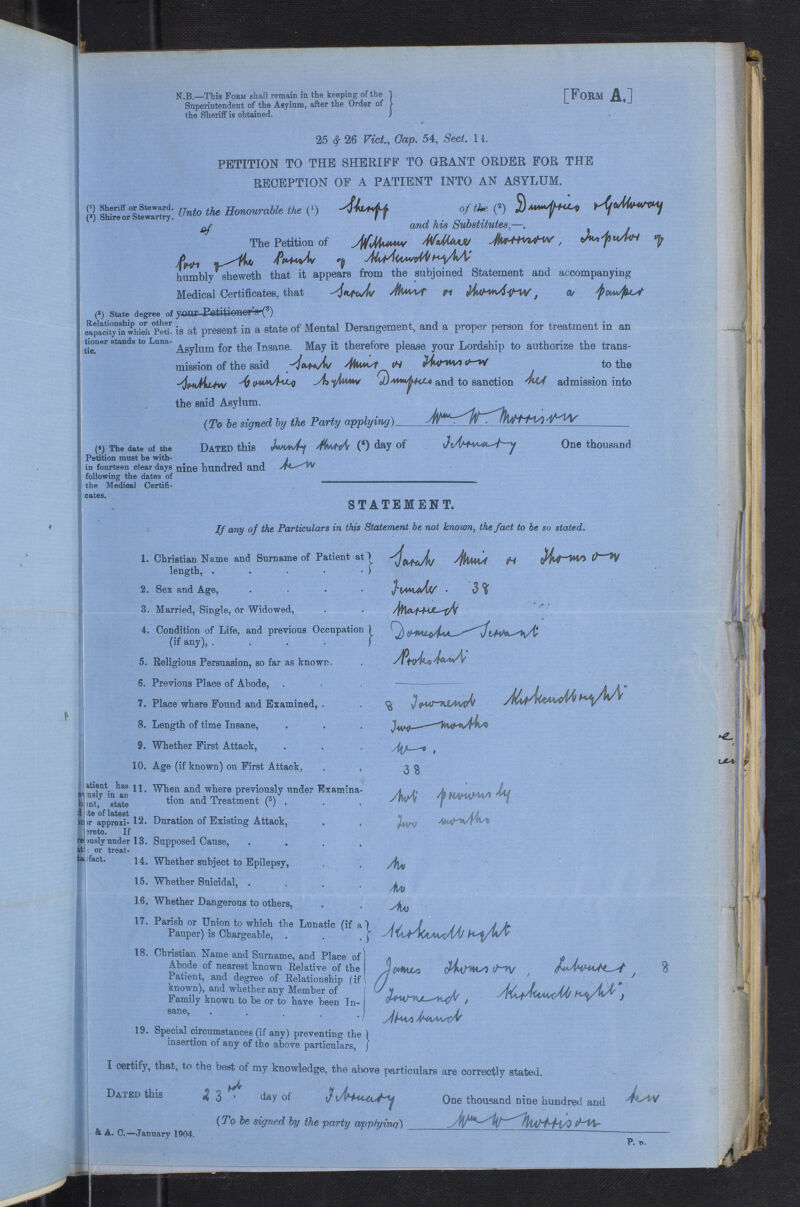 N.B.—This Form shall remain in the keeping of the
Superintendent of the Asylum, after the Order of
the Sheriff is obtained.
[Form A.]
25 & 26 Vict., Cap. 54, Sect. 14.
PETITION TO THE SHERIFF TO GRANT ORDER FOR THE
RECEPTION OF A PATIENT INTO AN ASYLUM.
(¹) Sheriff or Steward.
(²) Shire or Stewartry.
Unto the Honourable the (¹) Sheriff of the (²) Dumfries & Galloway
of and his Substitutes,—.
The Petition of William Wallace Morrison, Inspector of
Poor of the Parish of Kirkcudbright
humbly sheweth that it appears from the subjoined Statement and accompanying
Medical Certificates, that Sarah Muir or Thomson, a pauper
(³) State degree of
Relationship or other
capacity in which Peti-
tioner stands to Luna-
tic.
your Petitioner's (³)
is at present in a state of Mental Derangement, and a proper person for treatment in an
Asylum for the Insane. May it therefore please your Lordship to authorize the trans-
mission of the said Sarah Muir or Thomson to the
Southern Counties Asylum Dumfries and to sanction her admission into
the said Asylum.
(To be signed by the Party applying) Wm. W. Morrison
(⁴) The date of the
Petition must be with-
in fourteen clear days
following the dates of
the Medical Certifi-
cates.
Dated this twenty third (⁴) day of February One thousand
nine hundred and ten
STATEMENT.
If any of the Particulars in this Statement be not known, the fact to be so stated.
1. Christian Name and Surname of Patient at
length, . . . . . Sarah Muir or Thomson
2. Sex and Age, . . . . Female . 38
3. Married, Single, or Widowed, . . Married
4. Condition of Life, and previous Occupation
(if any), . . . . Domestic Servant
5. Religious Persuasion, so far as known. . Protestant
6. Previous Place of Abode, . ———
7. Place where Found and Examined, . . 8 Townend Kirkcudbright
8. Length of time Insane, . . . Two months
9. Whether First Attack, . . .
10. Age (if known) on First Attack, . . 38
atient has
usly in an
nt, state
te of latest
r approxi-
reto. If
ously under
or treat-
fact.
11. When and where previously under Examina-
tion and Treatment (⁵) . . . Not previously
12. Duration of Existing Attack, . . Two months
13. Supposed Cause, . . . .
14. Whether subject to Epilepsy, . . No
15. Whether Suicidal, . . . . No
16. Whether Dangerous to others, . . No
17. Parish or Union to which the Lunatic (if a
Pauper) is Chargeable, . . . Kirkcudbright
18. Christian Name and Surname, and Place of
Abode of nearest known Relative of the
Patient, and degree of Relationship (if
known), and whether any Member of
Family known to be or to have been In-
sane, . . . . .
James Thomson, Labourer, 8
Townend, Kirkcudbright,
Husband
19. Special circumstances (if any) preventing the
insertion of any of the above particulars,
I certify, that, to the best of my knowledge, the above particulars are correctly stated.
Dated this 23rd. day of February One thousand nine hundred and ten
(To be signed by the party applying) Wm W Morrison
& A. C.—January 1904.
P. n.